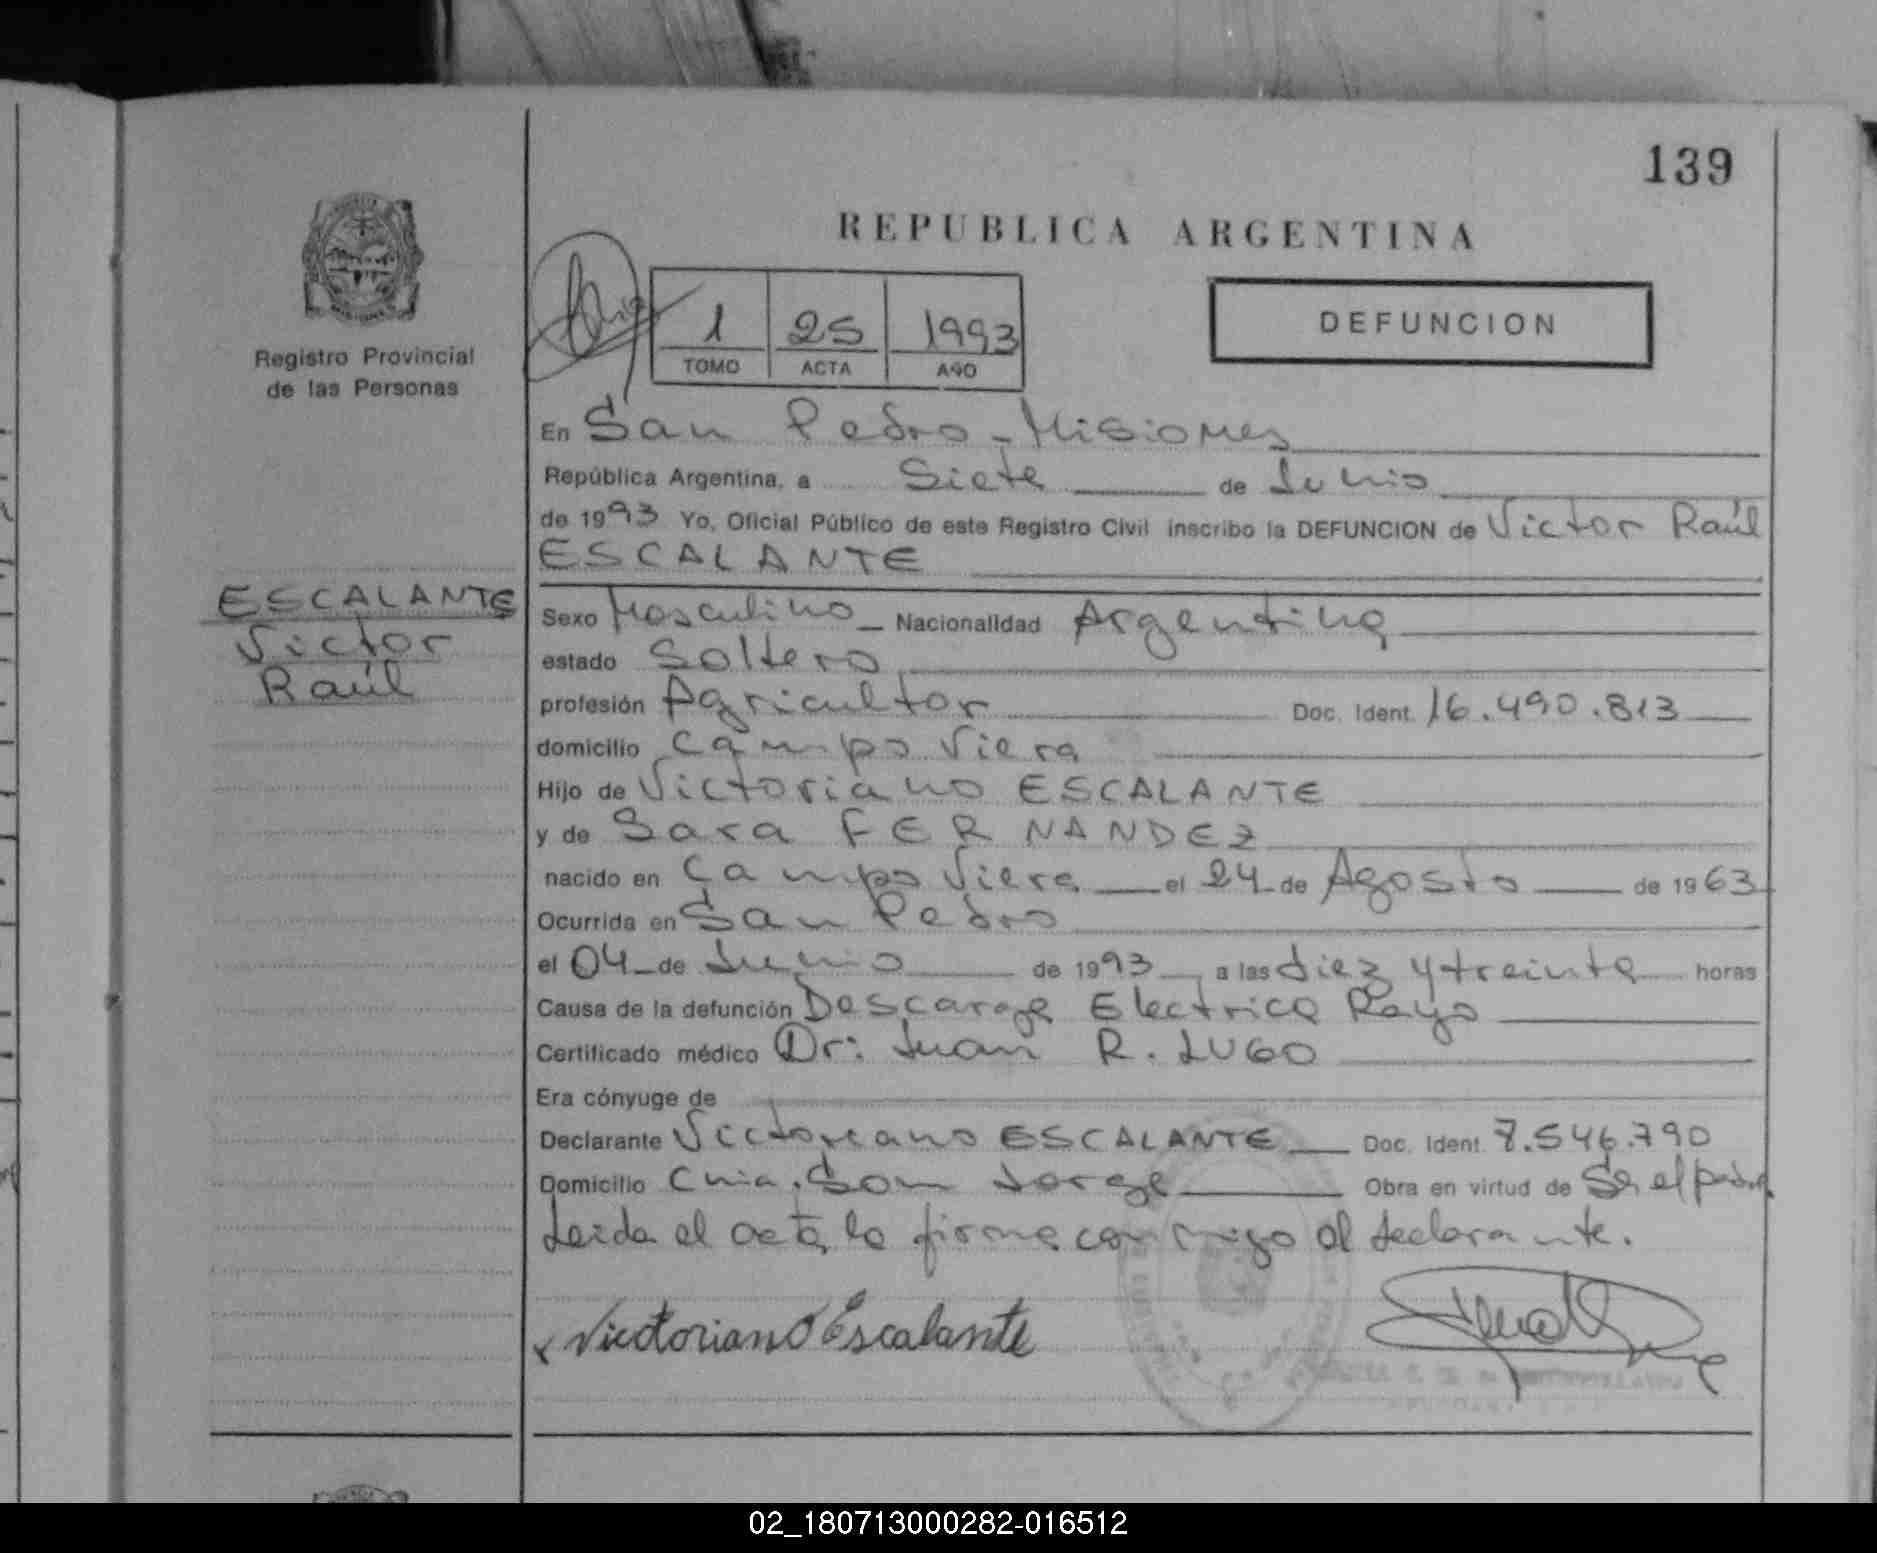 139
REPUBLICA ARGENTINA
1 25 1993
TOMO ACTA AÑO
DEFUNCION
Registro Provincial
de las Personas
En San Pedro - Misiones
República Argentina, a Siete de Junio
de 1993 Yo, Oficial Público de este Registro Civil inscribo la DEFUNCION de Victor Raúl
ESCALANTE
ESCALANTE
Victor
Raúl
Sexo Masculino Nacionalidad Argentina
estado Soltero
profesión Agricultor Doc. Ident. 16.490.813
domicilio Campo Viera
Hijo de Victoriano ESCALANTE
y de Sara FERNANDEZ
nacido en Campo Viera el 24 de Agosto de 1963
Ocurrida en San Pedro
el 04 de Junio de 1993 a las diez y treinta horas
Causa de la defunción Descarga Electrica Rayo
Certificado médico Dr: Juan R. LUGO
Era cónyuge de
Declarante Victoriano ESCALANTE Doc. Ident. 7.546.790
Domicilio Cnia. San Jorge Obra en virtud de Ser el padre
Leida el acta, la firma conmigo el declarante.
Victoriano Escalante
02_180713000282-016512